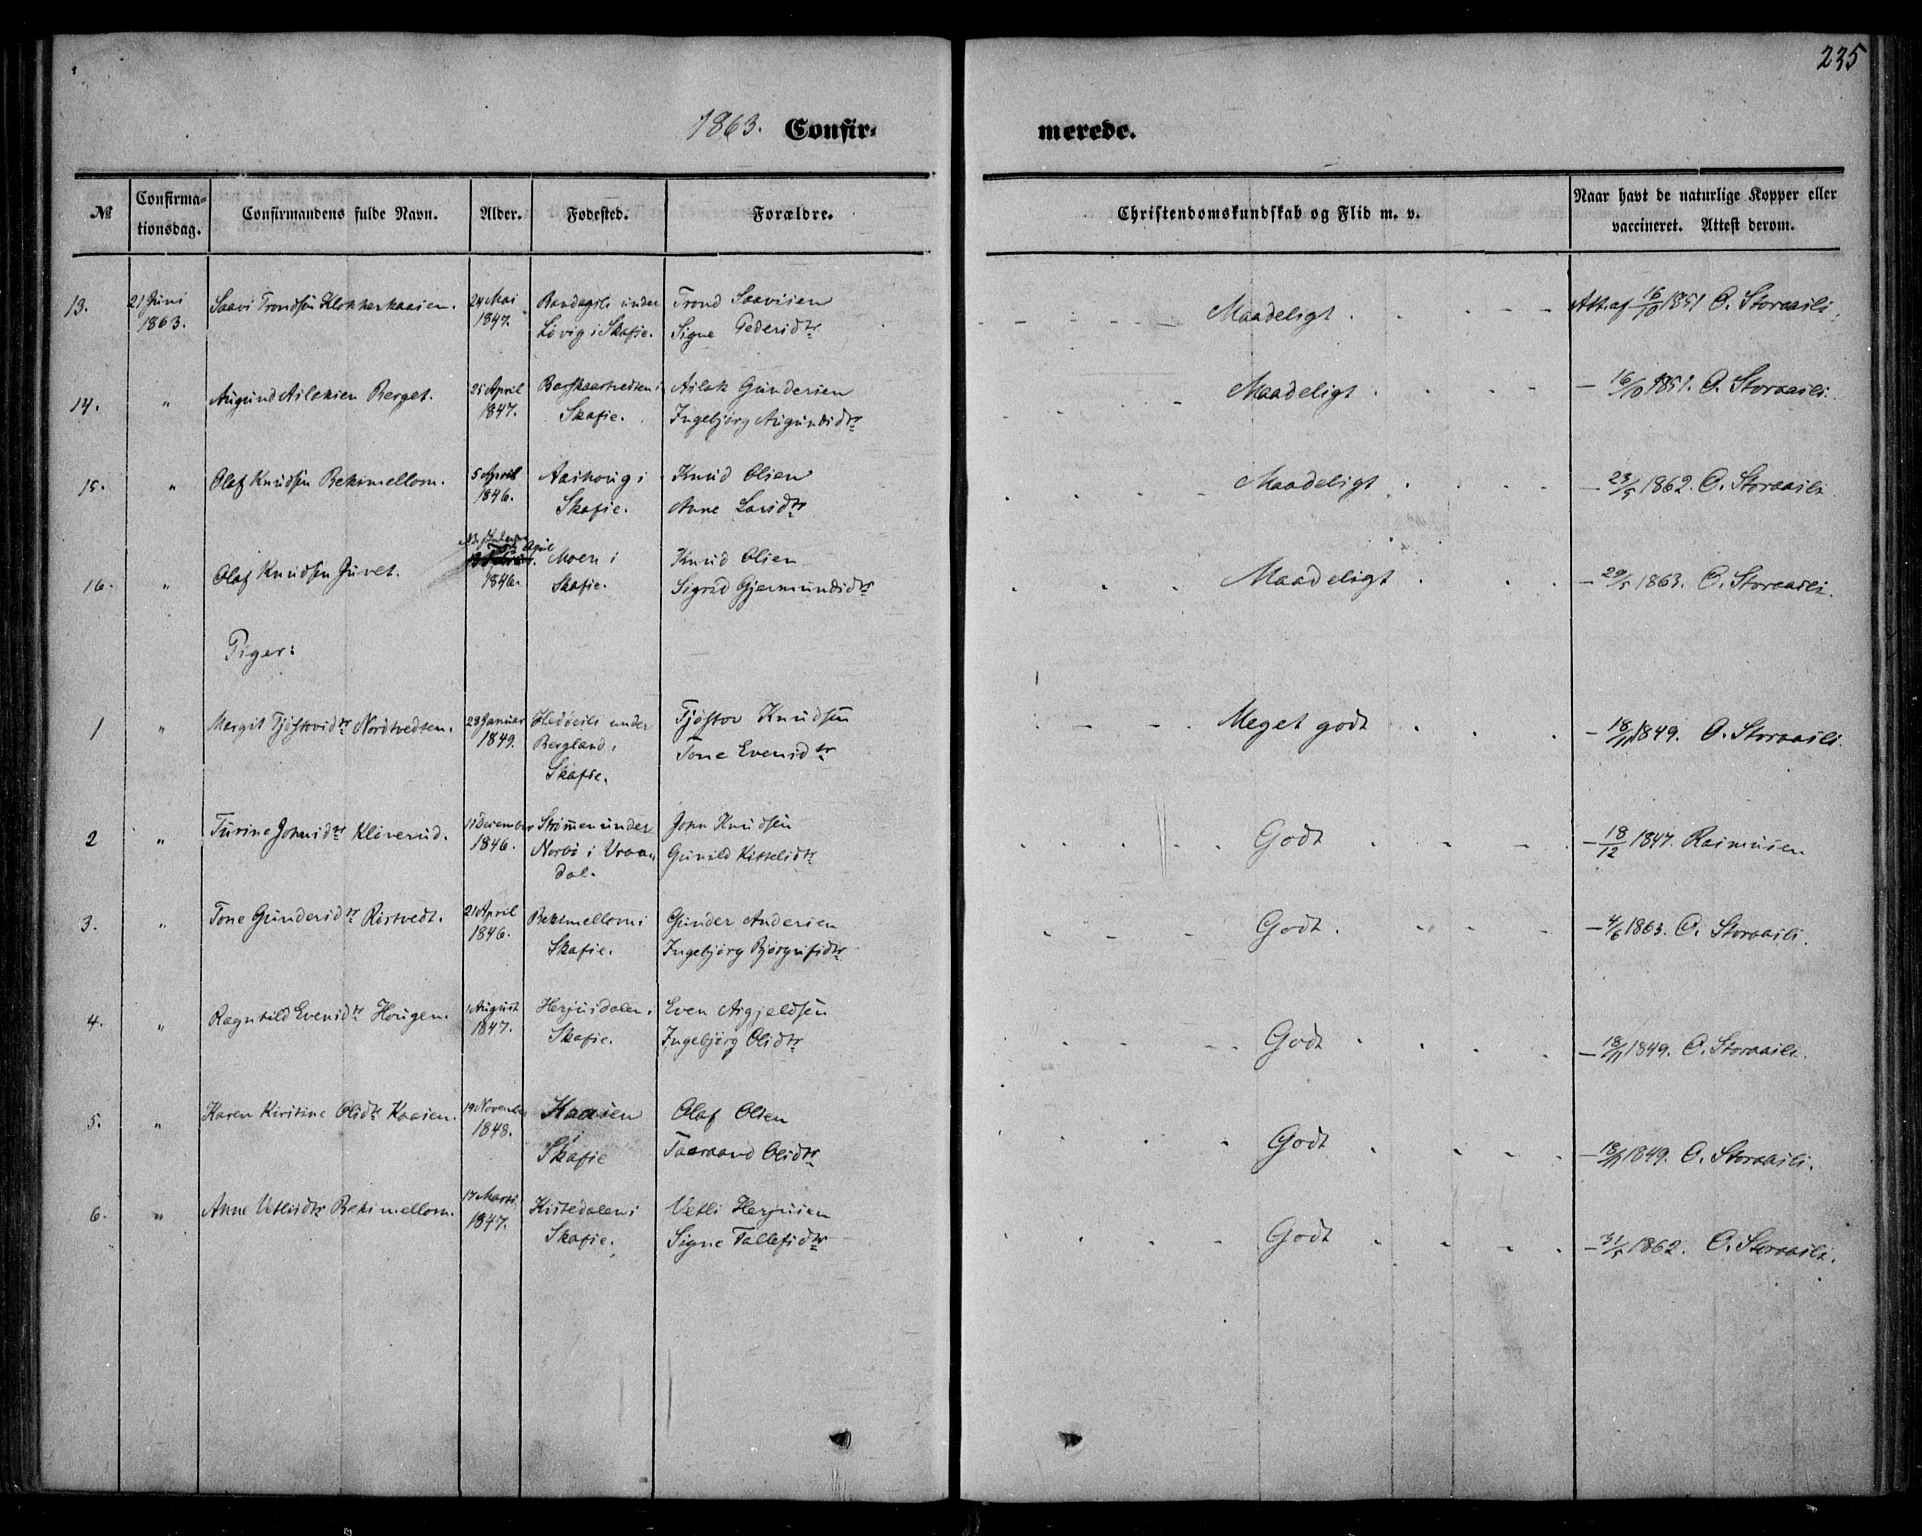 235
1863. Confir= merede.
№ Confirma=tionsdag. Confirmandens fulde Navn. Alder. Fødested. Forældre. Christendomskundskab og Flid m. v. Naar havt de naturlige Kopper eller vaccineret. Attest derom.
13. 21 Juni 1863. Saavi Trondsen Klokkerkaasen. 24 Mai 1847. under Løvig i Skafse. Trond Saavisen Signe Pedersdtr Maadeligt Att. af 16/10 1851 O. Storaasli.
14. " Augund Aslaksen Berget. 25 April 1847. i Skafse. Aslak Gundersen Ingebjørg Augundsdtr Maadeligt – 16/10 1851. O. Storaasli.
15. " Olaf Knudsen Bekimellom. 5 April 1846. Aashoug i Skafse. Knud Olsen Anne Larsdtr Maadeligt – 23/5 1862. O. Storaasli
16. " Olaf Knudsen Juvet. April 1846. Moen i Skafse. Knud Olsen Sigrid Gjermundsdtr Maadeligt – 29/5 1863. O. Storaasli.
Piger:
1 " Margit Tjøstovsdtr Nordtvedten. 28 Januar 1849. under Bergland i Skafse. Tjøstov Knudsen Tone Evensdtr Meget godt – 18/11 1849. O. Storaasli.
2 " Turine Johnsdtr Kleverud. December 1846. Strømmen under Norbø i Vraadal. John Knudsen Gunild Kittelsdtr Godt – 18/12 1847. Rasmusen
3. " Tone Gundersdtr Ristvedt. 21 April 1846. Bekimellom i Skafse. Gunder Andersen Ingebjørg Bjørgufsdtr Godt. – 4/6 1863. O. Storaasli.
4. " Ragnhild Evensdtr Hougen. 1 August 1847. Herjusdalen i Skafse. Even Asgjeldsen Ingebjørg Olsdtr Godt – 18/11 1849. O. Storaasli.
5. " Karen Kirstine Olsdtr Kaasen. 19 November 1848. Kaasen i Skafse Olaf Olsen Taaraand Olsdtr Godt – 18/11 1849. O. Storaasli.
6. " Anne Vetlisdtr Bekimellom. 17 Marts 1847. Kistedalen i Skafse. Vetli Herjusen Signe Tallefsdtr Godt – 31/5 1862. O. Storaasli.